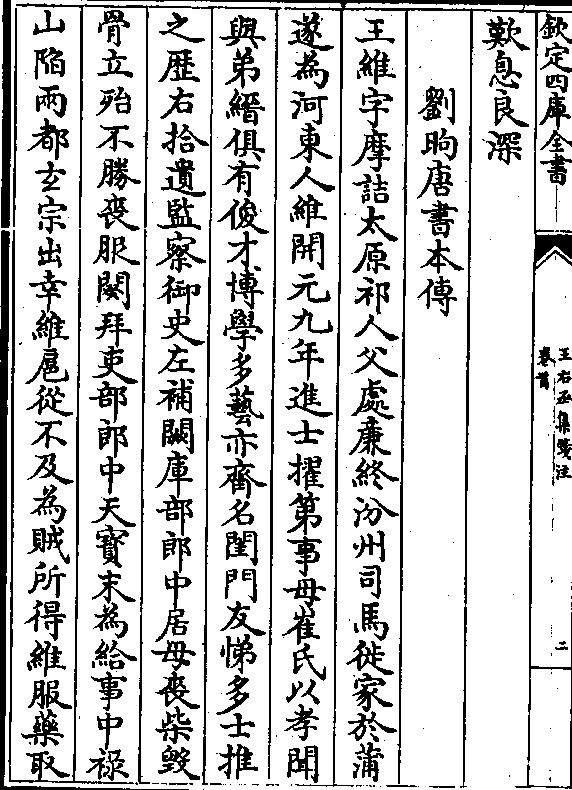 欽定四庫全書
王右丞集箋注
卷首
二
歎息良深
劉昫唐書本傳
王維字摩詰太原祁人父處廉終汾州司馬徙家於蒲
遂為河東人維開元九年進士擢第事母崔氏以孝聞
與弟縉俱有俊才博學多藝亦齊名閨門友悌多士推
之歷右拾遺監察御史左補闕庫部郎中居母喪柴毀
骨立殆不勝喪服闋拜吏部郎中天寶末為給事中祿
山陷兩都玄宗出幸維扈從不及為賊所得維服藥取